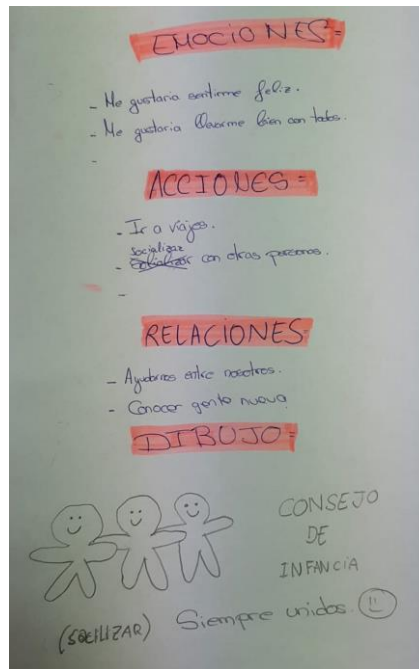 EMOCIONES=
- Me gustaria sentirme feliz.
- Me gustaria llevarme bien con todos.
-
ACCIONES=
- Ir a viajes.
socializar
- con otras personas.
-
RELACIONES=
- Ayudarnos entre nosotros.
- Conocer gente nueva
DIBUJO=
CONSEJO
DE
INFANCIA
(SOCILIZAR) Siempre unidos.